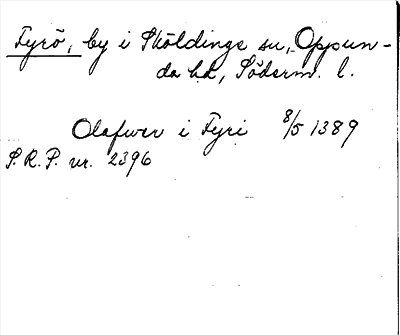 Fyrö, by i Sköldinge sn, Oppun-
da hd, Söderm. l.
Olafwer i Fyri 8/5 1389
S.R.P. nr. 2396